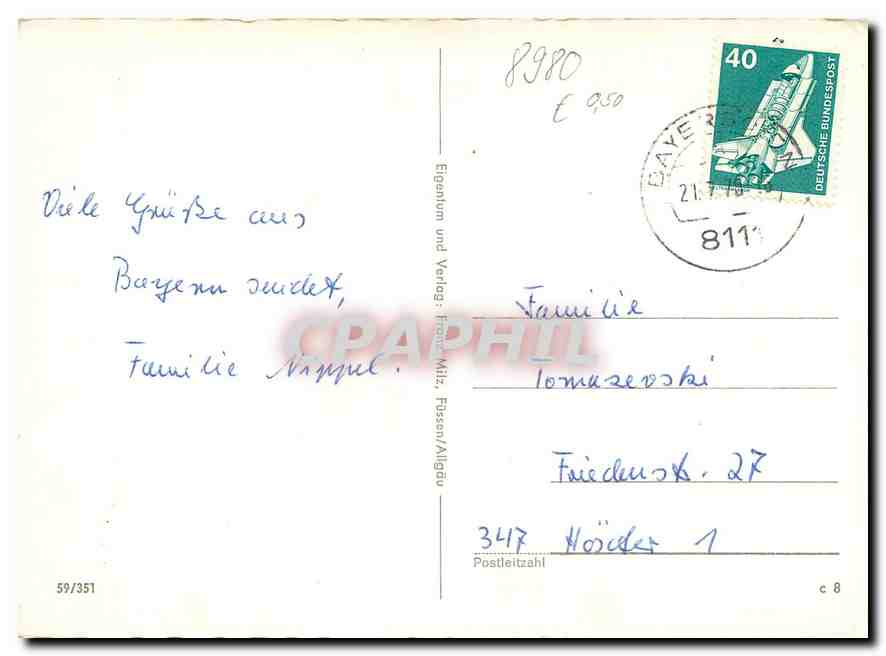 Viele Grüße aus
Bayern sendet,
Familie Nippel.
59/351
Eigentum und Verlag: Franz Milz, Füssen/Allgäu
8980
£ 0,50
40
DEUTSCHE BUNDESPOST
BAYE
21.7.
8111
CPAPHIL
Familie
Tomazevski
Friedenstr. 27
347 Höxter 1
Postleitzahl
c 8